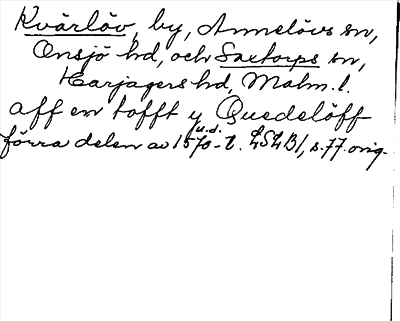 Kvärlöv, by, Annelövs sn,
Onsjö hd, och Saxtorps sn,
Harjagers hd, Malm. l.
aff en tofft y Quedelöff
u.d.
förra delen av 1570-t. LSLB1, s. 77. orig.